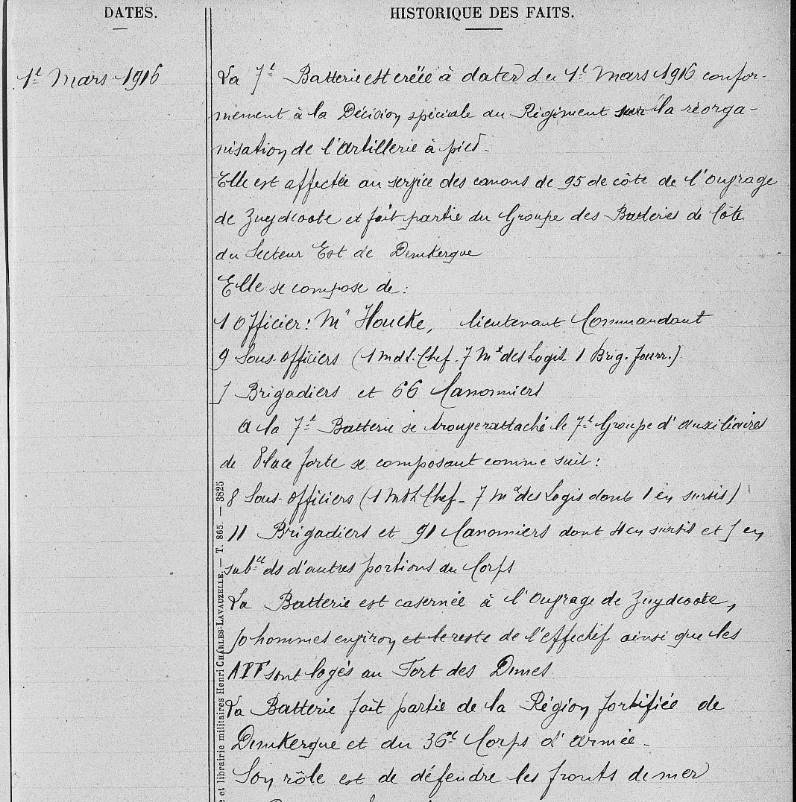 DATES.
HISTORIQUE DES FAITS.
1er Mars 1916
La 7e Batterie est créée à dater du 1er Mars 1916 confor-
mément à la Décision spéciale du Régiment sur la réorga-
nisation de l'artillerie à pied.
Elle est affectée au service des canons de 95 de côte de l'Ouvrage
de Zuydcoote et fait partie du Groupe des Batteries de Côte
du Secteur Est de Dunkerque
Elle se compose de :
1 Officier : Mr Houcke, lieutenant Commandant
9 Sous-Officiers (1 Mdl. Chef - 7 Mis des Logis - 1 Brig. fourr.)
Brigadiers et 66 Canonniers
A la 7e Batterie se trouve rattaché le 7e Groupe d'auxiliaires
de Place forte se composant comme suit :
8 Sous-Officiers (1 Mdl Chef - 7 Mis des Logis dont 1 en sursis)
11 Brigadiers et 91 Canonniers dont 4 en sursis et 5 en
subce ds d'autres portions du Corps
La Batterie est casernée à l'Ouvrage de Zuydcoote,
50 hommes environ et le reste de l'effectif ainsi que les
sont logés au Fort des Dunes
La Batterie fait partie de la Région fortifiée de
Dunkerque et du 36e Corps d'Armée.
Son rôle est de défendre les fronts de mer
et librairie militaires Henri CHARLES-LAVAUZELLE. — T. 865. — 3825